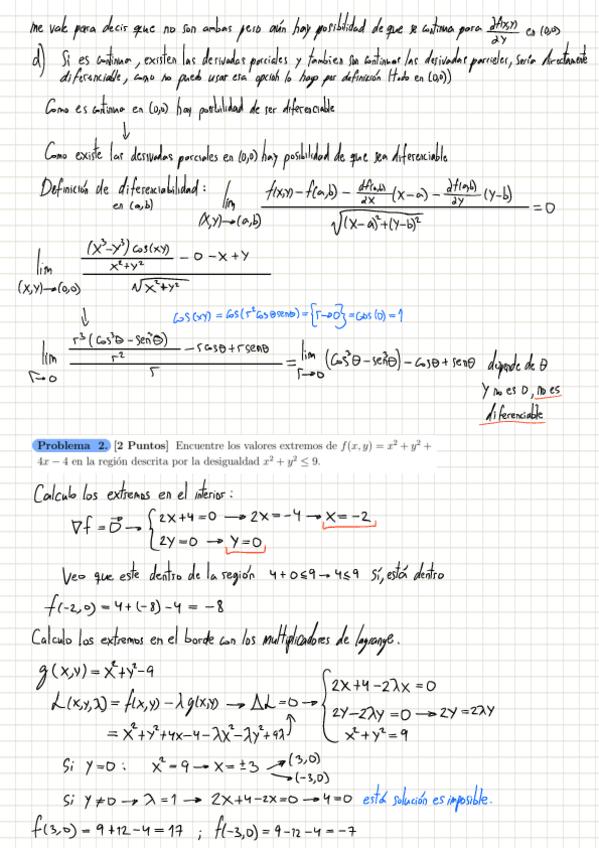 me vale para decir que no son ambas pero aún hay posibilidad de que se continua para ∂f(x,y)/∂y en (0,0)
d) Si es continua, existen las derivadas parciales y tambien son continuas las derivadas parciales, sería directamente
diferenciable, como no puedo usar esa opción lo hago por definición (todo en (0,0))
Como es continua en (0,0) hay posibilidad de ser diferenciable
↓
Como existe las derivadas parciales en (0,0) hay posibilidad de que sea diferenciable
Definición de diferenciabilidad: en (a,b) lim (x,y)→(a,b) (f(x,y) - f(a,b) - ∂f(a,b)/∂x (x-a) - ∂f(a,b)/∂y (y-b)) / √((x-a)²+(y-b)²) = 0
lim (x,y)→(0,0) ((x³-y³)cos(xy)/(x²+y²) - 0 - x + y) / √(x²+y²)
↓ cos(xy) = cos(r²cosθsenθ) = {r→0} = cos(0) = 1
lim r→0 (r³(cos³θ - sen³θ)/r² - rcosθ + rsenθ) / r = lim r→0 (cos³θ - sen³θ) - cosθ + senθ depende de θ
y no es 0, no es
diferenciable
Problema 2. [2 Puntos] Encuentre los valores extremos de f(x, y) = x² + y² +
4x − 4 en la región descrita por la desigualdad x² + y² ≤ 9.
Calculo los extremos en el interior:
∇f = 0⃗ → { 2x+4=0 → 2x=-4 → x=-2
2y=0 → y=0
Veo que este dentro de la región 4+0≤9 → 4≤9 Sí, está dentro
f(-2,0) = 4+(-8)-4 = -8
Calculo los extremos en el borde con los multiplicadores de lagrange.
g(x,y) = x²+y²-9
L(x,y,λ) = f(x,y) - λg(x,y) → ΔL = 0 → { 2x+4-2λx=0
2y-2λy=0 → 2y=2λy
x²+y²=9
= x²+y²+4x-4-λx²-λy²+9λ
Si y=0: x²=9 → x=±3 → (3,0)
→ (-3,0)
Si y≠0 → λ=1 → 2x+4-2x=0 → 4=0 está solución es imposible.
f(3,0) = 9+12-4 = 17 ; f(-3,0) = 9-12-4 = -7